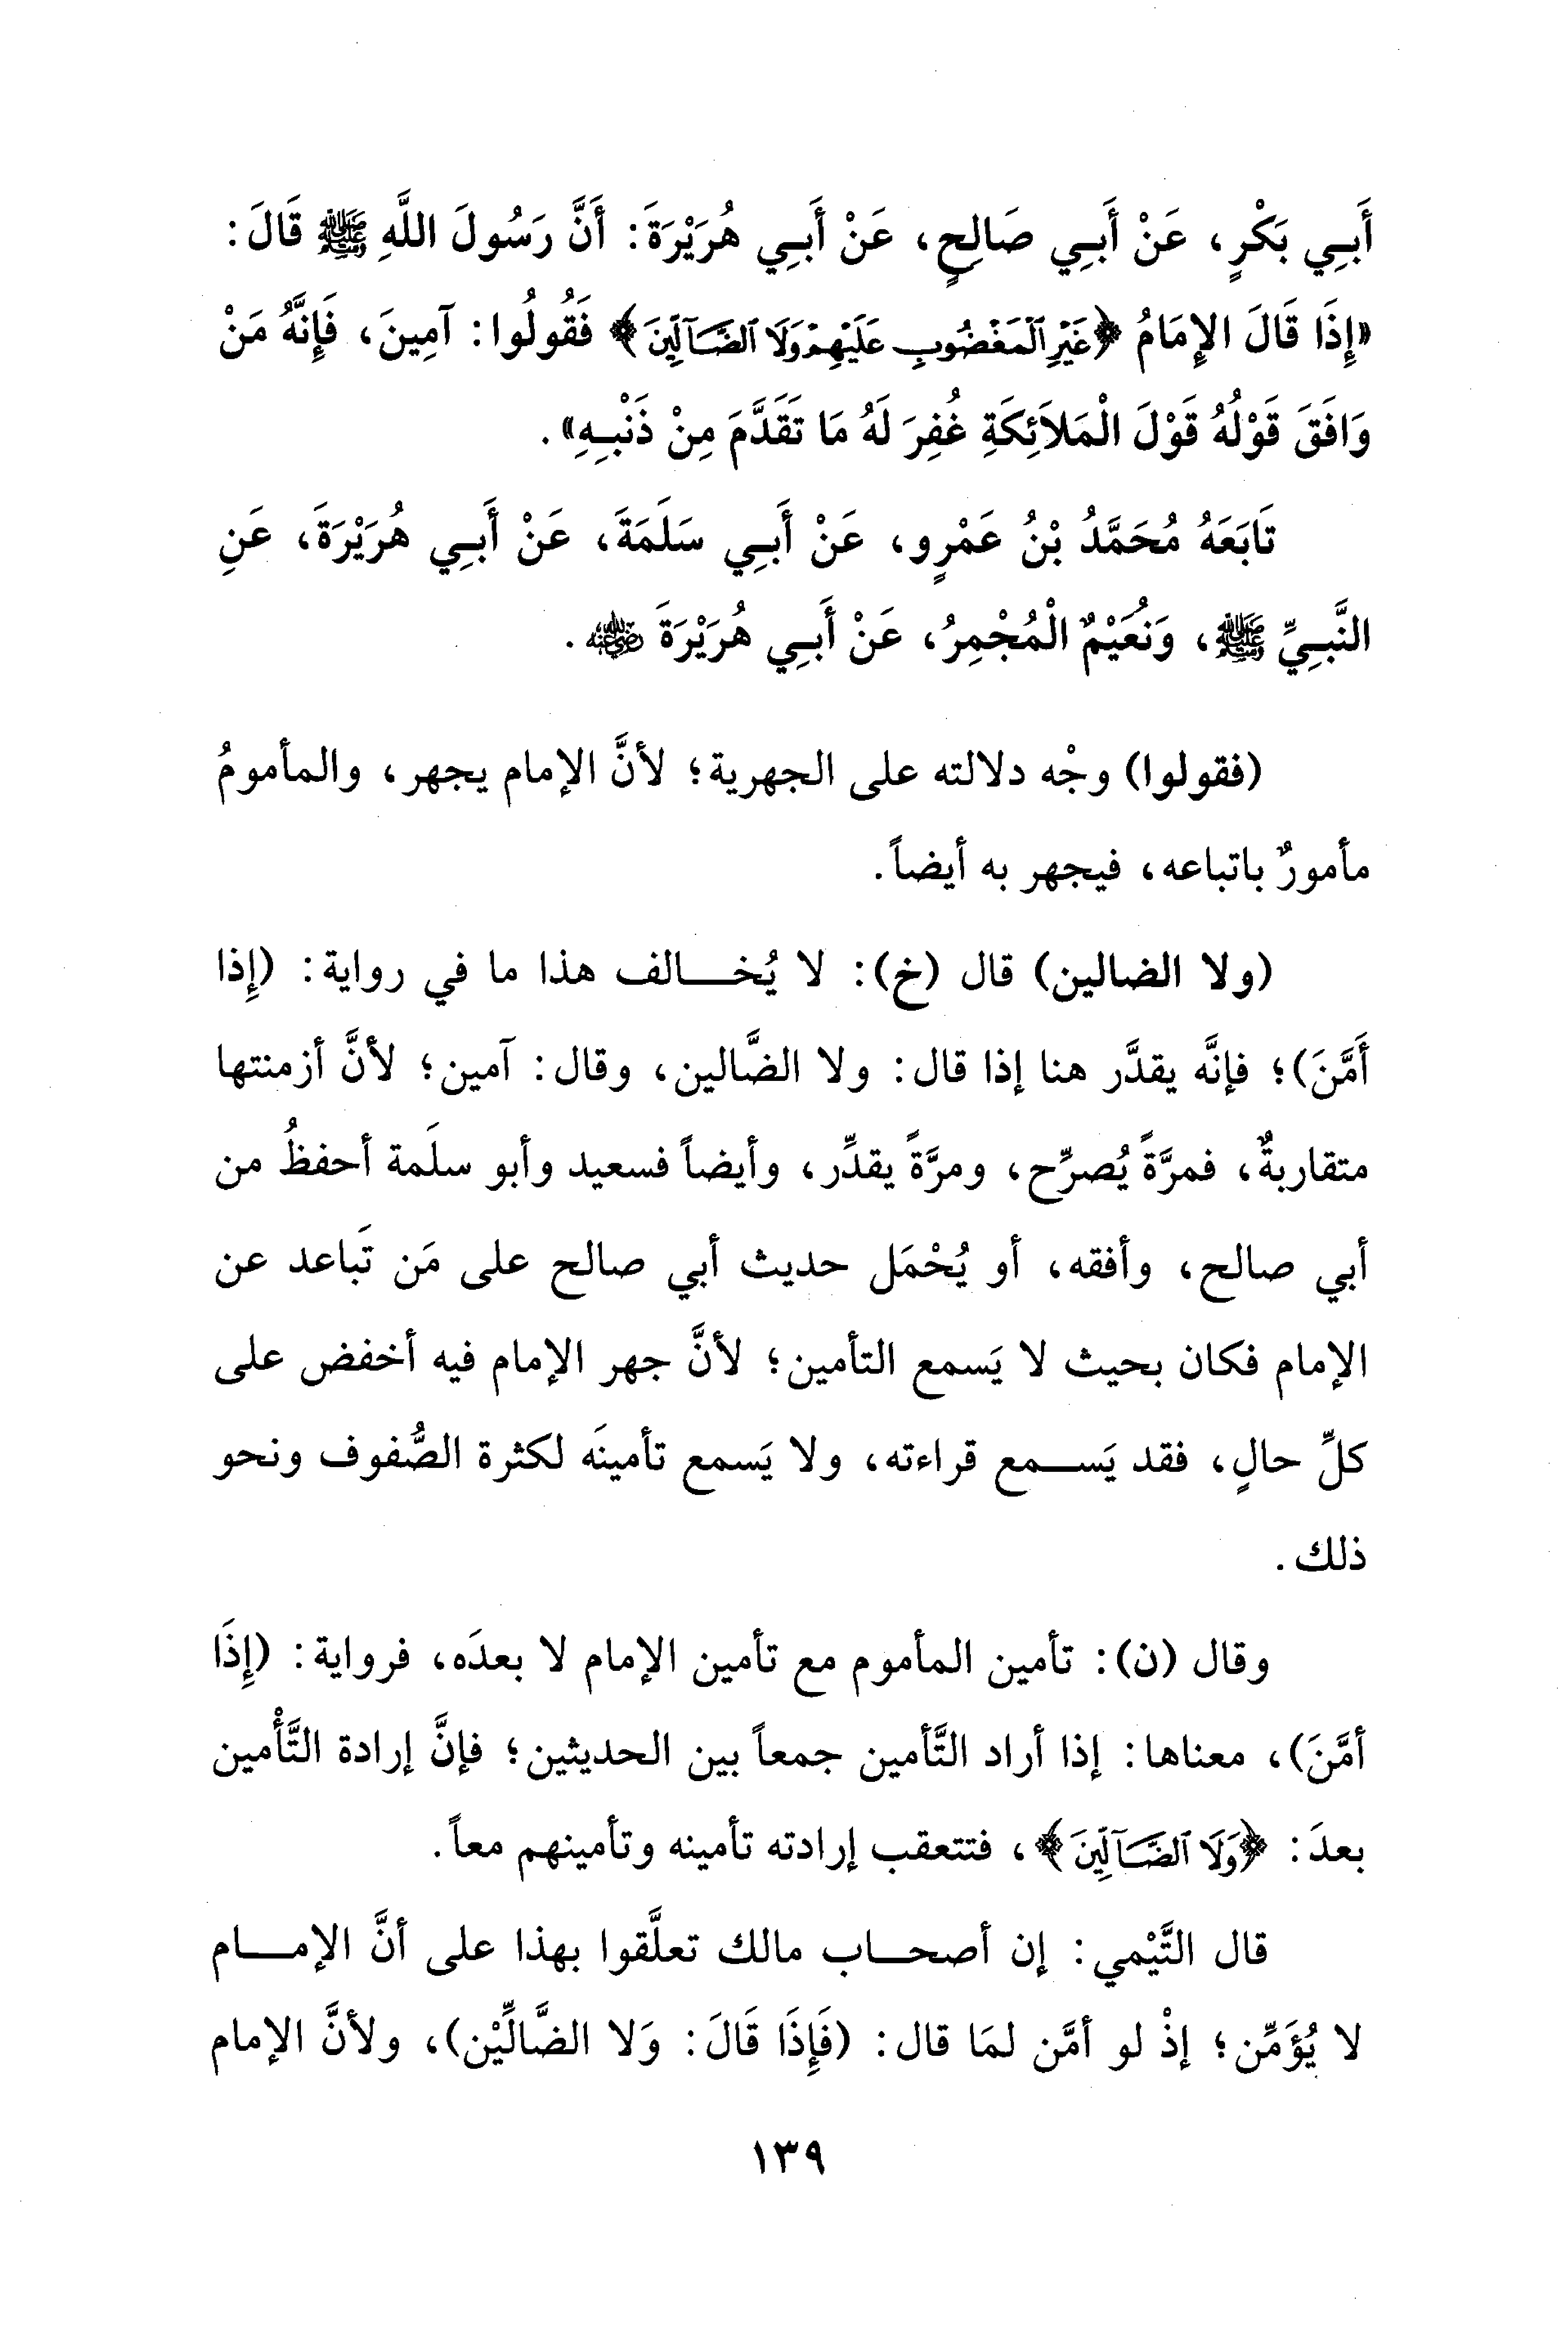 أَبِي بَكْرٍ، عَنْ أَبِي صَالِحٍ، عَنْ أَبِي هُرَيْرَةَ: أَنَّ رَسُولَ اللَّهِ ﷺ قَالَ:
«إِذَا قَالَ الإِمَامُ ﴿غَيْرِ ٱلْمَغْضُوبِ عَلَيْهِمْ وَلَا ٱلضَّآلِّينَ﴾ فَقُولُوا: آمِينَ، فَإِنَّهُ مَنْ
وَافَقَ قَوْلُهُ قَوْلَ الْمَلاَئِكَةِ غُفِرَ لَهُ مَا تَقَدَّمَ مِنْ ذَنْبِهِ».
تَابَعَهُ مُحَمَّدُ بْنُ عَمْرٍو، عَنْ أَبِي سَلَمَةَ، عَنْ أَبِي هُرَيْرَةَ، عَنِ
النَّبِيِّ ﷺ، وَنُعَيْمٌ الْمُجْمِرُ، عَنْ أَبِي هُرَيْرَةَ رضي الله عنه.
(فقولوا) وجْه دلالته على الجهرية؛ لأنَّ الإمام يجهر، والمأمومُ
مأمورٌ باتباعه، فيجهر به أيضاً.
(ولا الضالين) قال (خ): لا يُخـــالف هذا ما في رواية: (إِذا
أَمَّنَ)؛ فإنَّه يقدَّر هنا إذا قال: ولا الضَّالين، وقال: آمين؛ لأنَّ أزمنتها
متقاربةٌ، فمرَّةً يُصرِّح، ومرَّةً يقدِّر، وأيضاً فسعيد وأبو سلَمة أحفظُ من
أبي صالح، وأفقه، أو يُحْمَل حديث أبي صالح على مَن تَباعد عن
الإمام فكان بحيث لا يَسمع التأمين؛ لأنَّ جهر الإمام فيه أخفض على
كلِّ حالٍ، فقد يَســمع قراءته، ولا يَسمع تأمينَه لكثرة الصُّفوف ونحو
ذلك.
وقال (ن): تأمين المأموم مع تأمين الإمام لا بعدَه، فرواية: (إِذَا
أمَّنَ)، معناها: إذا أراد التَّأمين جمعاً بين الحديثين؛ فإنَّ إرادة التَّأْمين
بعدَ: ﴿وَلَا ٱلضَّآلِّينَ﴾، فتتعقب إرادته تأمينه وتأمينهم معاً.
قال التَّيْمي: إن أصحــاب مالك تعلَّقوا بهذا على أنَّ الإمـــام
لا يُؤَمِّن؛ إذْ لو أمَّن لمَا قال: (فَإِذَا قَالَ: وَلا الضَّالِّيْن)، ولأنَّ الإمام
١٣٩